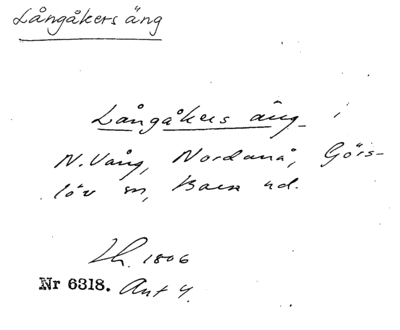 Långåkers äng
Långåkers äng i
N. Vång, Nordanå, Görs-
löv sn, Bara hd.
Lh. 1806
Nr 6318. Akt 4.